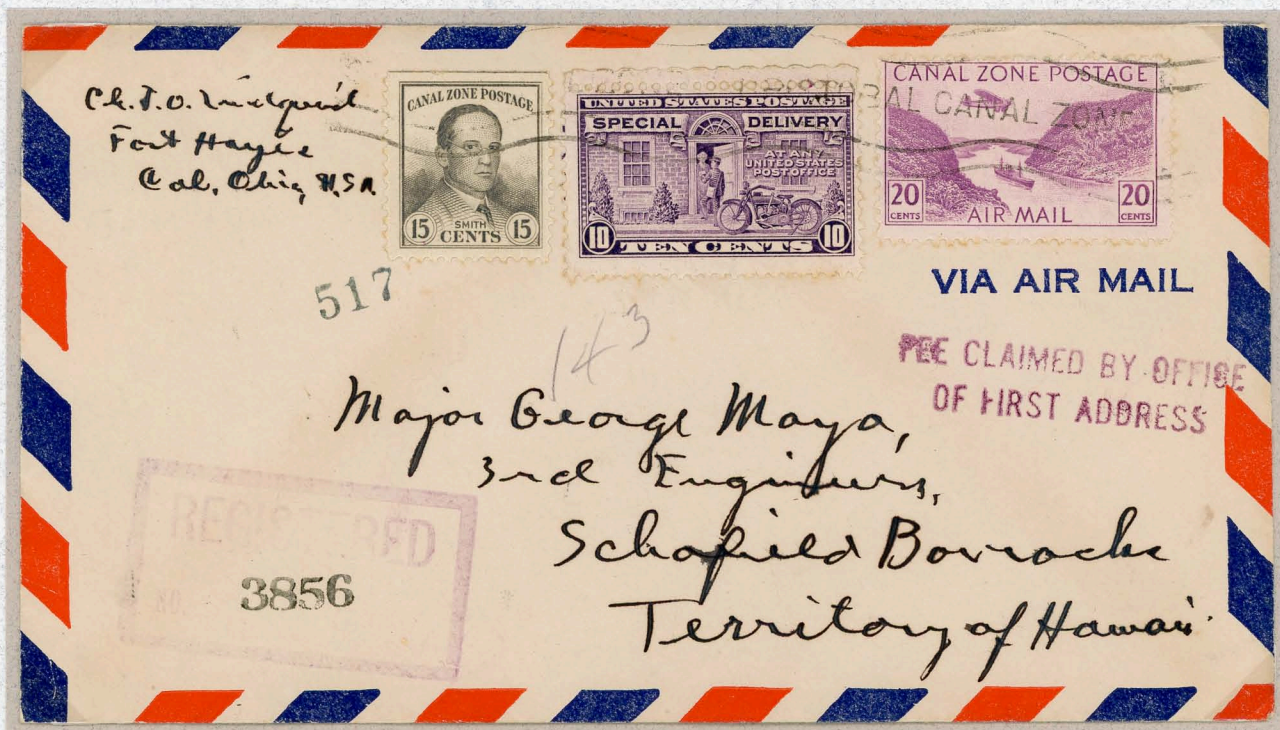 Ch. J. O. Lindquist
Fort Hayes
Col, Ohio, U.S.A.
CANAL ZONE POSTAGE
SMITH
15 CENTS 15
UNITED STATES POSTAGE
SPECIAL DELIVERY
AT ANY
UNITED STATES
POST OFFICE
10 TEN CENTS 10
CANAL ZONE POSTAGE
CANAL ZONE
20 CENTS
AIR MAIL
20 CENTS
VIA AIR MAIL
517
143
FEE CLAIMED BY OFFICE
OF FIRST ADDRESS
Major George Mayo,
3rd Engineers,
Schofield Barracks
Territory of Hawaii
REGISTERED
3856